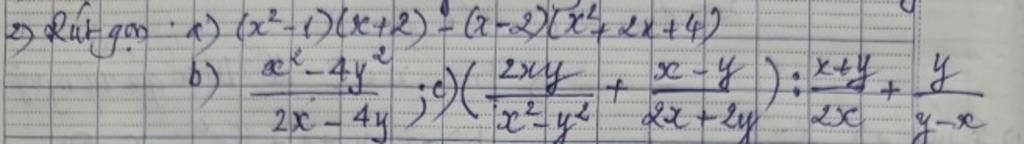 2) Rút gọn a) (x² - 1)(x + 2) - (x - 2)(x² + 2x + 4)
b) (x² - 4y²)/(2x - 4y) ; c) (2xy/(x² - y²) + (x - y)/(2x + 2y)) : (x + y)/2x + y/(y - x)